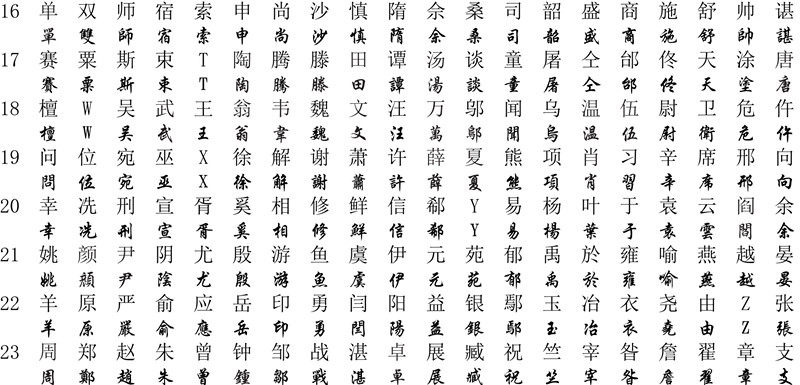 16 单 双 师 宿 索 申 尚 沙 慎 隋 佘 桑 司 韶 盛 商 施 舒 帅 谌
單 雙 師 宿 索 申 尚 沙 慎 隋 佘 桑 司 韶 盛 商 施 舒 帥 諶
17 赛 粟 斯 束 T 陶 腾 滕 田 谭 汤 谈 童 屠 仝 邰 佟 天 涂 唐
賽 粟 斯 束 T 陶 騰 滕 田 譚 湯 談 童 屠 仝 邰 佟 天 塗 唐
18 檀 W 吴 武 王 翁 韦 魏 文 汪 万 邬 闻 乌 温 伍 尉 卫 危 仵
檀 W 吴 武 王 翁 韋 魏 文 汪 萬 鄔 聞 烏 温 伍 尉 衛 危 仵
19 问 位 宛 巫 X 徐 解 谢 萧 许 薛 夏 熊 项 肖 习 辛 席 邢 向
問 位 宛 巫 X 徐 解 謝 蕭 許 薛 夏 熊 項 肖 習 辛 席 邢 向
20 幸 冼 刑 宣 胥 奚 相 修 鲜 信 郗 Y 易 杨 叶 于 袁 云 阎 余
幸 冼 刑 宣 胥 奚 相 修 鮮 信 郗 Y 易 楊 葉 于 袁 雲 閻 余
21 姚 颜 尹 阴 尤 殷 游 鱼 虞 伊 元 苑 郁 禹 於 雍 喻 燕 越 晏
姚 顔 尹 陰 尤 殷 游 鱼 虞 伊 元 苑 郁 禹 於 雍 喻 燕 越 晏
22 羊 原 严 俞 应 岳 印 勇 闫 阳 益 银 鄢 玉 冶 衣 尧 由 Z 张
羊 原 嚴 俞 應 岳 印 勇 閆 陽 益 銀 鄢 玉 冶 衣 堯 由 Z 張
23 周 郑 赵 朱 曾 钟 邹 战 湛 卓 展 臧 祝 竺 宰 昝 詹 翟 章 支
周 鄭 趙 朱 曾 鐘 鄒 戰 湛 卓 展 臧 祝 竺 宰 昝 詹 翟 章 支